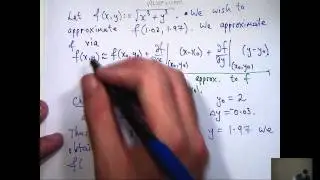 Let f(x,y) := √x³ + y³ . We wish to
approximate f(1.02, 1.97). We approximate
f via
f(x,y) ≈ f(x₀,y₀) + ∂f/∂x|(x₀,y₀) (x-x₀) + ∂f/∂y|(x₀,y₀) (y-y₀)
approx. to f
y₀ = 2
Δy = -0.03.
y = 1.97 we
obtain
f(